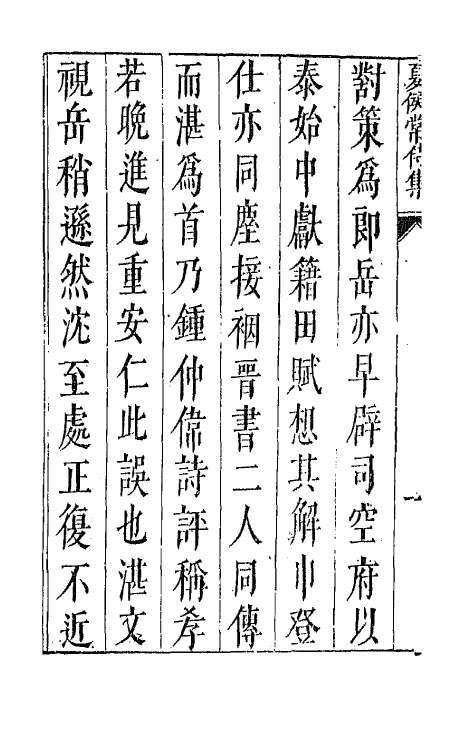 夏侯常侍集
對策爲郎岳亦早辟司空府以
泰始中獻籍田賦想其解巾登
仕亦同塵接裀晉書二人同傳
而湛爲首乃鍾仲偉詩評稱孝
若晚進見重安仁此誤也湛文
視岳稍遜然沈至處正復不近